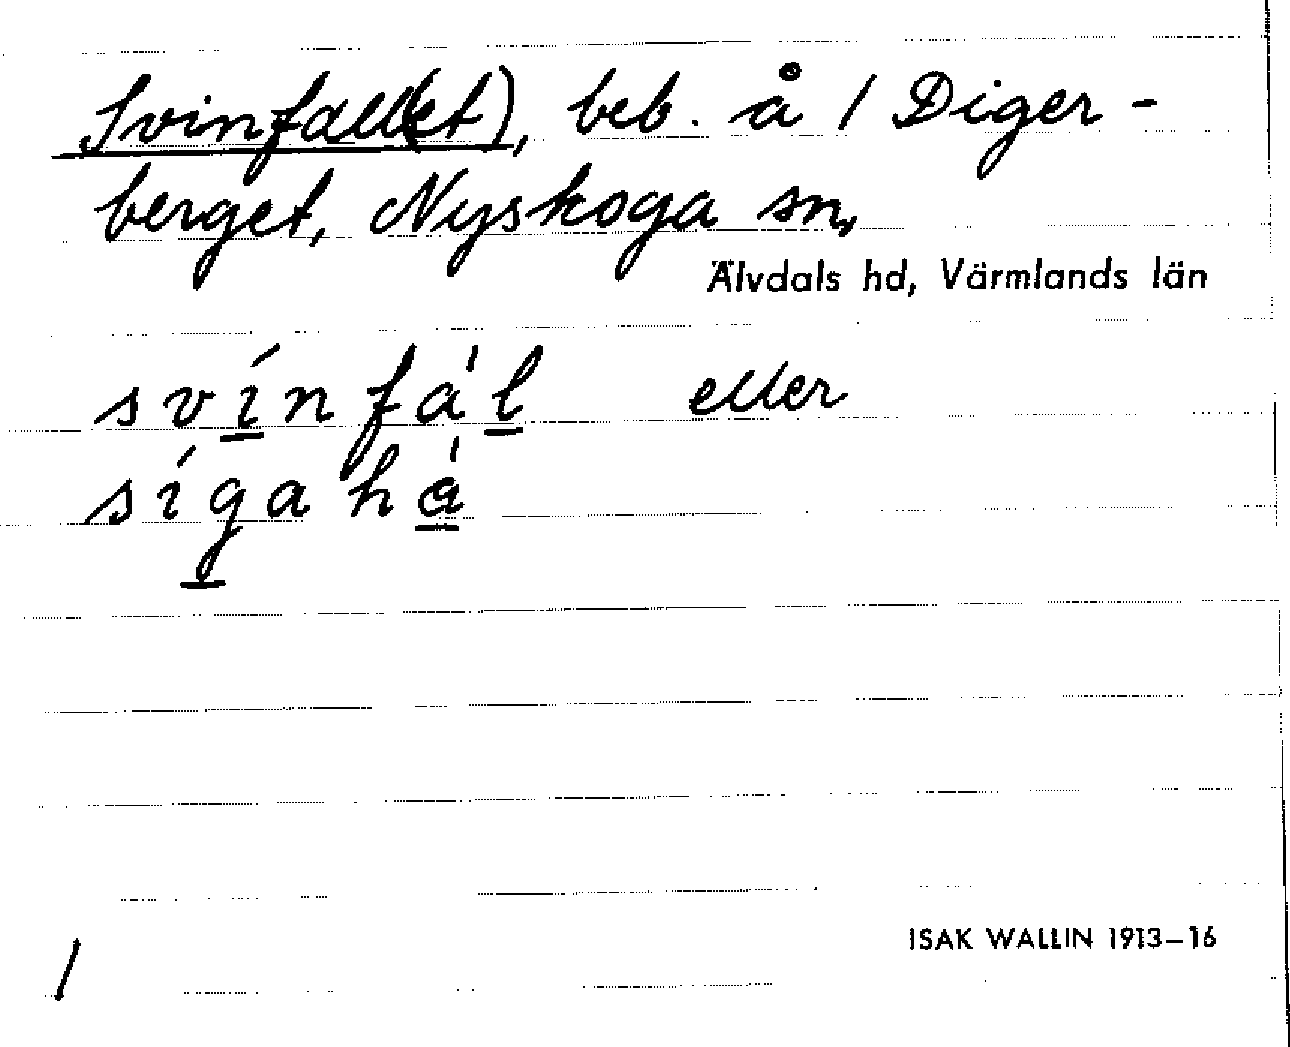 Svinfall(et), beb. å / Diger-
berget, Nyskoga sn,
Älvdals hd, Värmlands län
svínfál eller
sígahá
/
ISAK WALLIN 1913–16